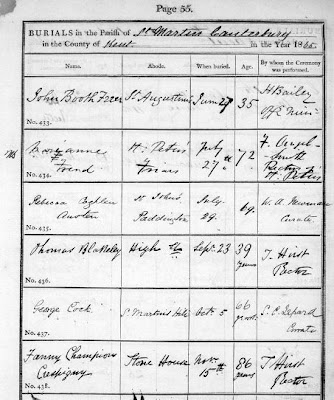 Page 55.
BURIALS in the Parish of St Martins Canterbury
in the County of Kent in the Year 1860
Name. Abode. When buried. Age. By whom the Ceremony was performed.
John Booth St Augustines June 27 35 H Bailey
No. 433.
Mary Anne Friend St Peters Friars July 27 72 Rector St Peters
No. 434.
Rebecca Austen St Johns Paddington July 29. 69. W. A. Newman Curate
No. 435.
Thomas Blakeley High St Sept. 23 39 years T. Hirst Rector
No. 436.
George Cock St Martins Hill Octr. 5 66 years Curate
No. 437.
Fanny Champion Crespigny Stone House Novr. 15th 86 years T Hirst Rector
No. 438.